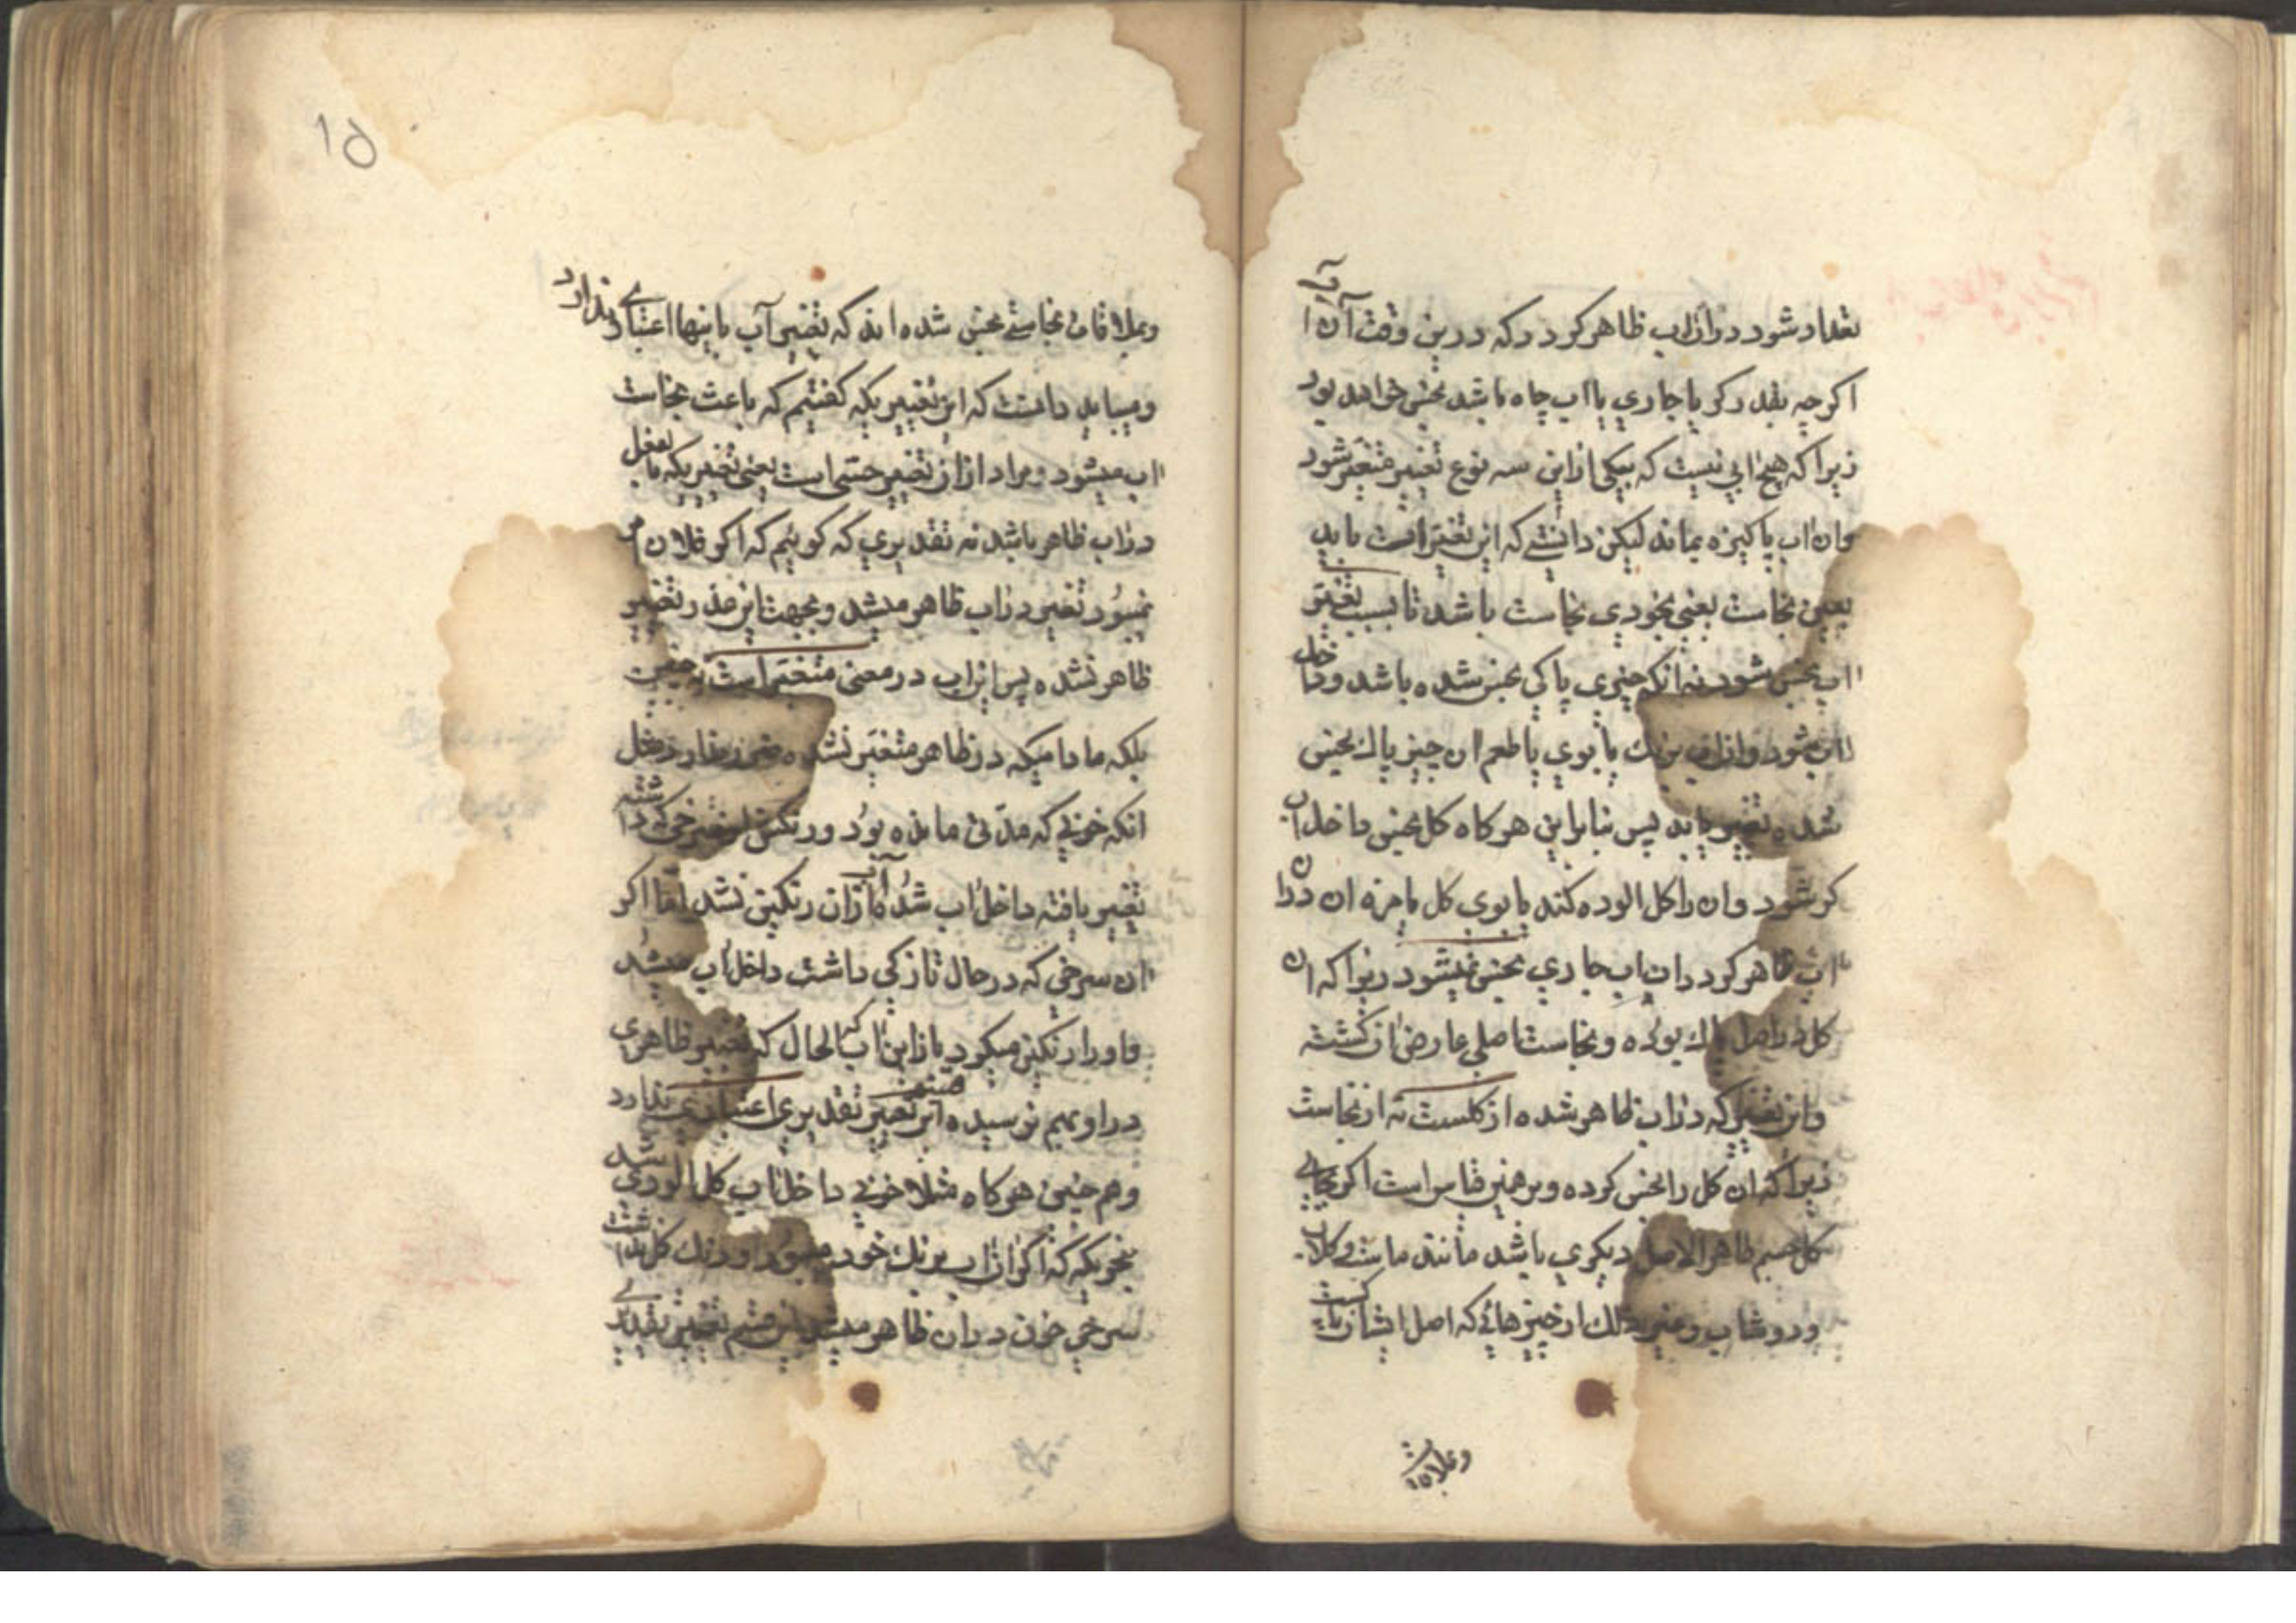 تعداد شود دران اب ظاهر کردد که درین وقت آن آب
اکرچه بقدر کر یا جاری یا اب چاه باشد نجس خواهد بود
زیرا که هیچ ابی نیست که بیکی ازاین سه نوع تغییر متغیر شود
وان اب پاکیزه بماند لیکن دانستی که این تغیر است باید
بعین نجاست یعنی بخودی نجاست باشد تا بسبب تغیر
اب نجس شود نه انکه چیزی پاکی نجس شده باشد و داخل
اب شود وان اب برنك یا بوی یا طعم ان چیز پاك نجس
شده تغییر یابد پس بنابراین هرکاه کل نجس داخل اب
کر شود وان را کل الوده کند یا بوی کل یا مزه ان دران
اب ظاهر کردد ان اب جاری نجس نمیشود زیرا که ان
کل در اصل پاك بوده و نجاست اصلی عارض ان کشته
واین تغییر که دران اب ظاهر شده از کلست نه از نجاست
زیرا که ان کل را نجس کرده و برهمین قیاس است اکر بجای
کل جسم طاهر الاصل دیکری باشد مانند ماست و کلاب
و دوشاب و غیر ذلك از چیزهائی که اصل ایشان پاکست
وبملاقات
۱۵
وبملاقات نجاستی نجس شده اند که تغییر آب باینها اعتباری ندارد
ومیباید دانست که این تغییریکه کفتیم که باعث نجاست
اب میشود مراد ازان تغییر حسی است یعنی تغییریکه بالفعل
دراب ظاهر باشد نه تقدیری که کوئیم که اکر فلان
نمیبود تغییر دراب ظاهر میشد وبجهت این عذر تغییر
ظاهر نشده پس این اب در معنی متغیر است نه چنین
بلکه مادامیکه در ظاهر متغیر نشده ضرر ندارد مثل
انکه خونی که مدتی مانده بود ورنکش تغییر داشته
تغییر یافته داخل اب شد آب ازان رنکین نشد اما اکر
ان سرخی که در حال تازکی داشت داخل اب میشد
واورا رنکین میکرد بازاین اب که الحال که تغییر ظاهری
دراو بهم نرسیده این قسم تغییر تقدیری اعتباری ندارد
وهم چنین هرکاه مثلا خونی داخل اب کل الودی شد
بنحویکه که اکر ان اب برنك خود میبود ورنك کل نداشت
سرخی خون دران ظاهر میشد این قسم تغییر تقدیری